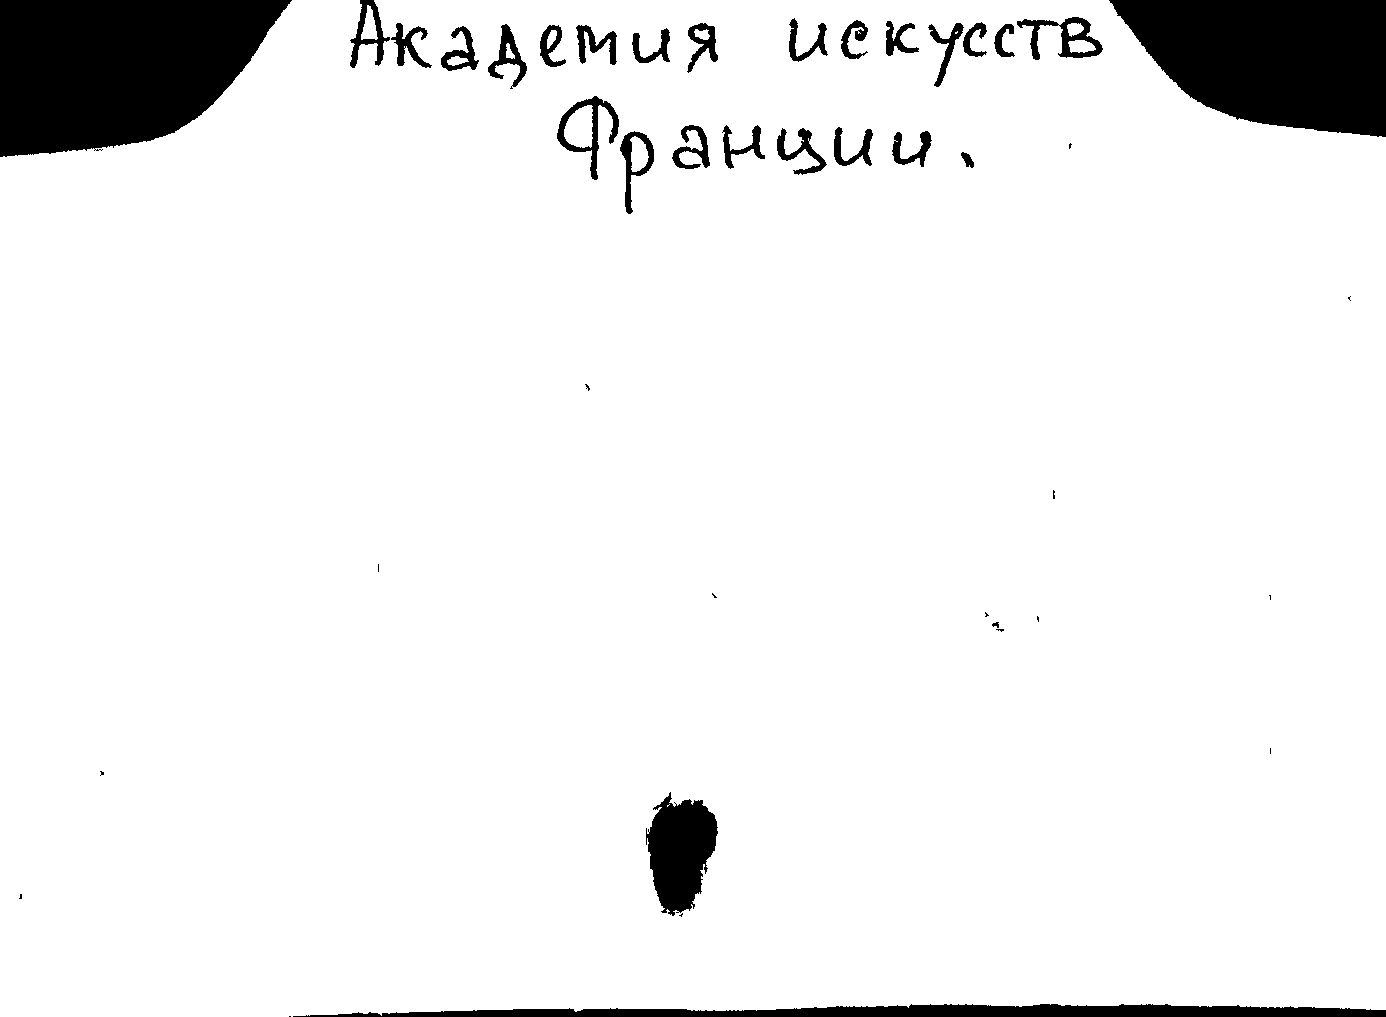 Академия искусств
Франции.